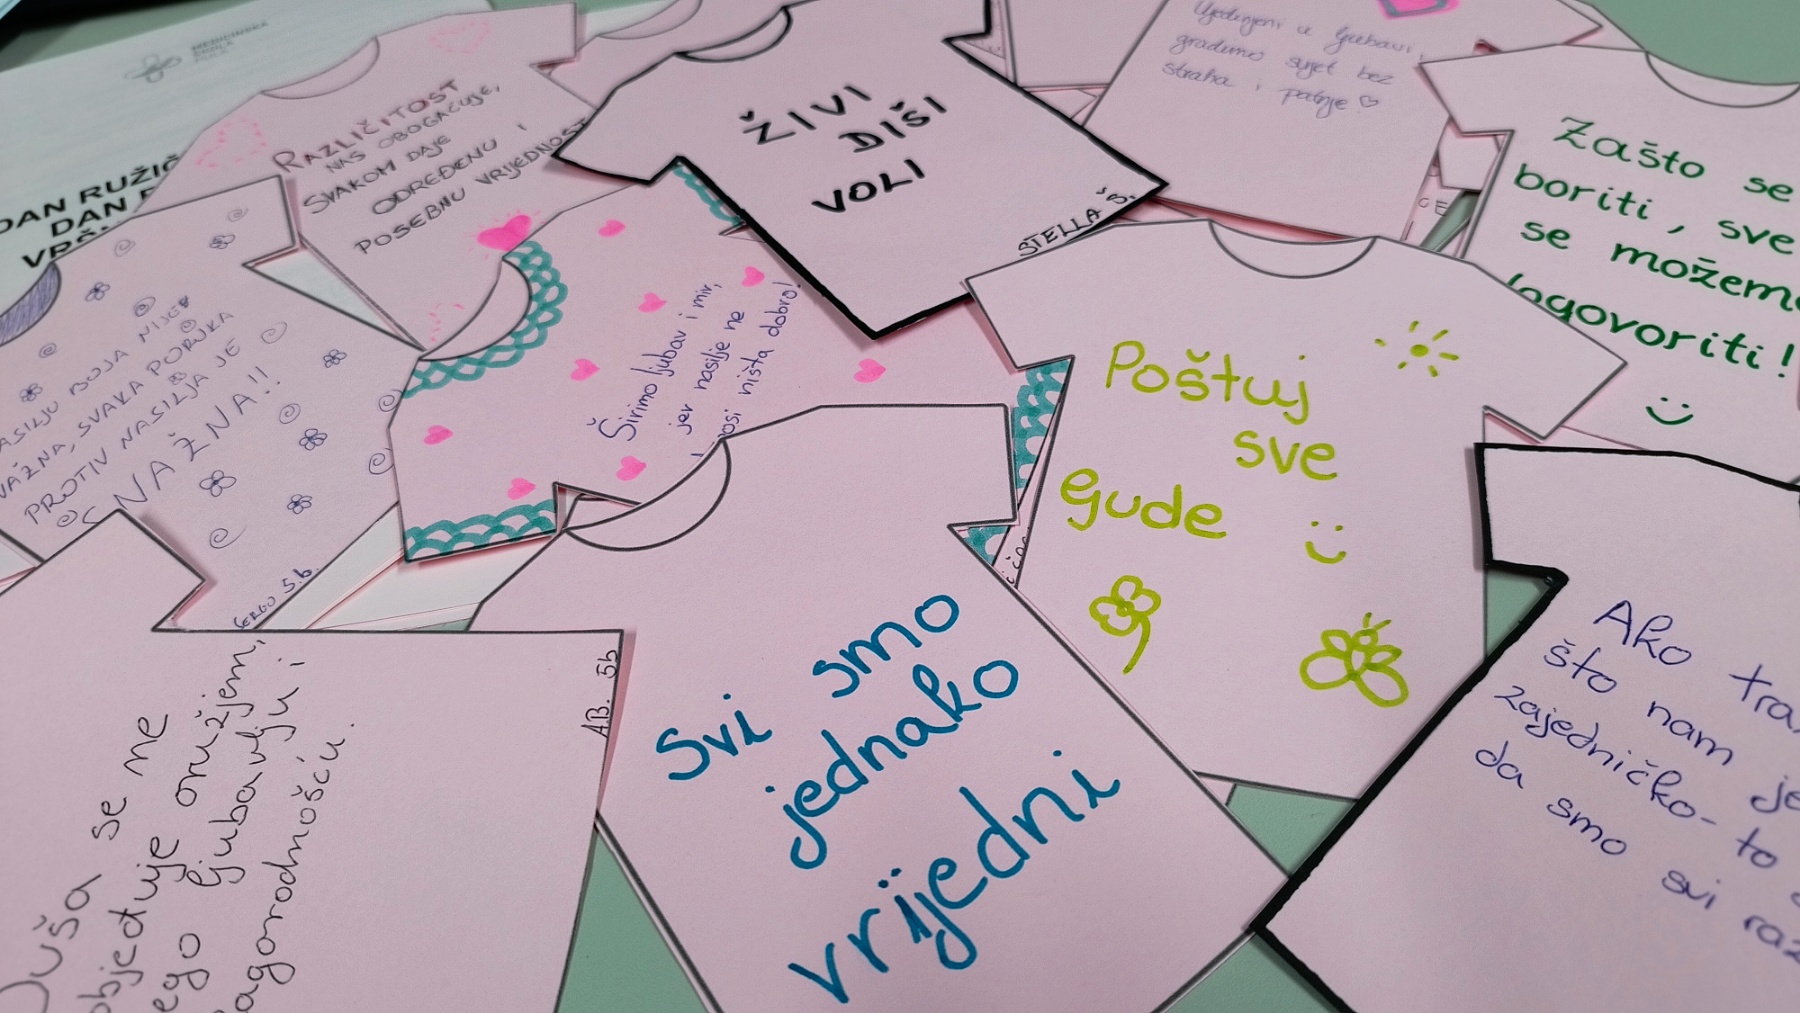 MEDICINSKA
ŠKOLA
DAN RUŽIČ
DAN
VRŠ
RAZLIČITOST
NAS OBOGAĆUJE,
SVAKOM DAJE
ODREĐENU I
POSEBNU VRIJEDNOST
ŽIVI
DIŠI
VOLI
STELLA Š.
Ujedinjeni u ljubavi,
gradimo svijet bez
straha i patnje
Zašto se
boriti, sve
se možem
ogovoriti!
ASILJU BOJA NIJE
VAŽNA, SVAKA PORUKA
PROTIV NASILJA JE
SNAŽNA!!
5.b.
Širimo ljubav i mir,
jer nasilje ne
nosi ništa dobro!
Poštuj
sve
ljude
Svi smo
jednako
vrijedni
A.B. 5b
Duša se ne
objeđuje oružjem,
ego ljubavlju i
agorodnošću.
Ako tra
što nam je
zajedničko- to
da smo
svi raz